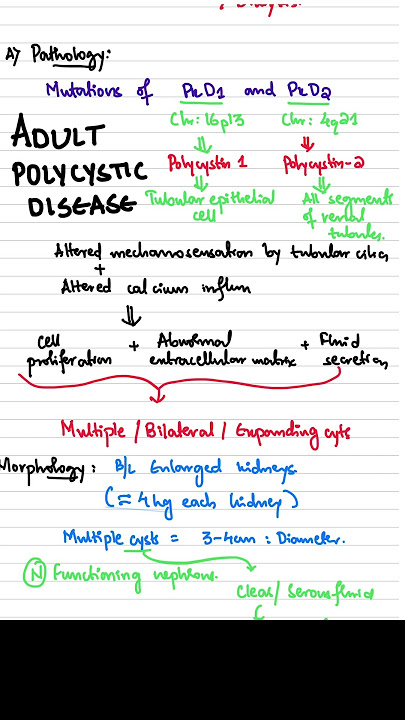 A) Pathology:
Mutations of PKD1 and PKD2
Chr: 16p13 Chr: 4q21
ADULT POLYCYSTIC DISEASE
Polycystin 1 Polycystin-2
Tubular epithelial cell
All segments of renal tubules.
Altered mechanosensation by tubular cilia
+
Altered calcium influx
Cell proliferation + Abnormal extracellular matrix + Fluid secretion
Multiple / Bilateral / Expanding cysts
Morphology: B/L Enlarged kidneys.
(≈ 4kg each kidney)
Multiple cysts = 3-4cm : Diameter.
(N) Functioning nephrons.
Clear/ serous fluid